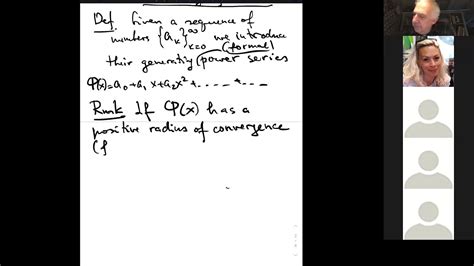 Def Given a sequence of
numbers {a_k}_{k=0}^∞ we introduce
(formal)
their generating power series
φ(x)=a_0+a_1 x+a_2x^2+----+--
Rmk If φ(x) has a
positive radius of convergence
(f